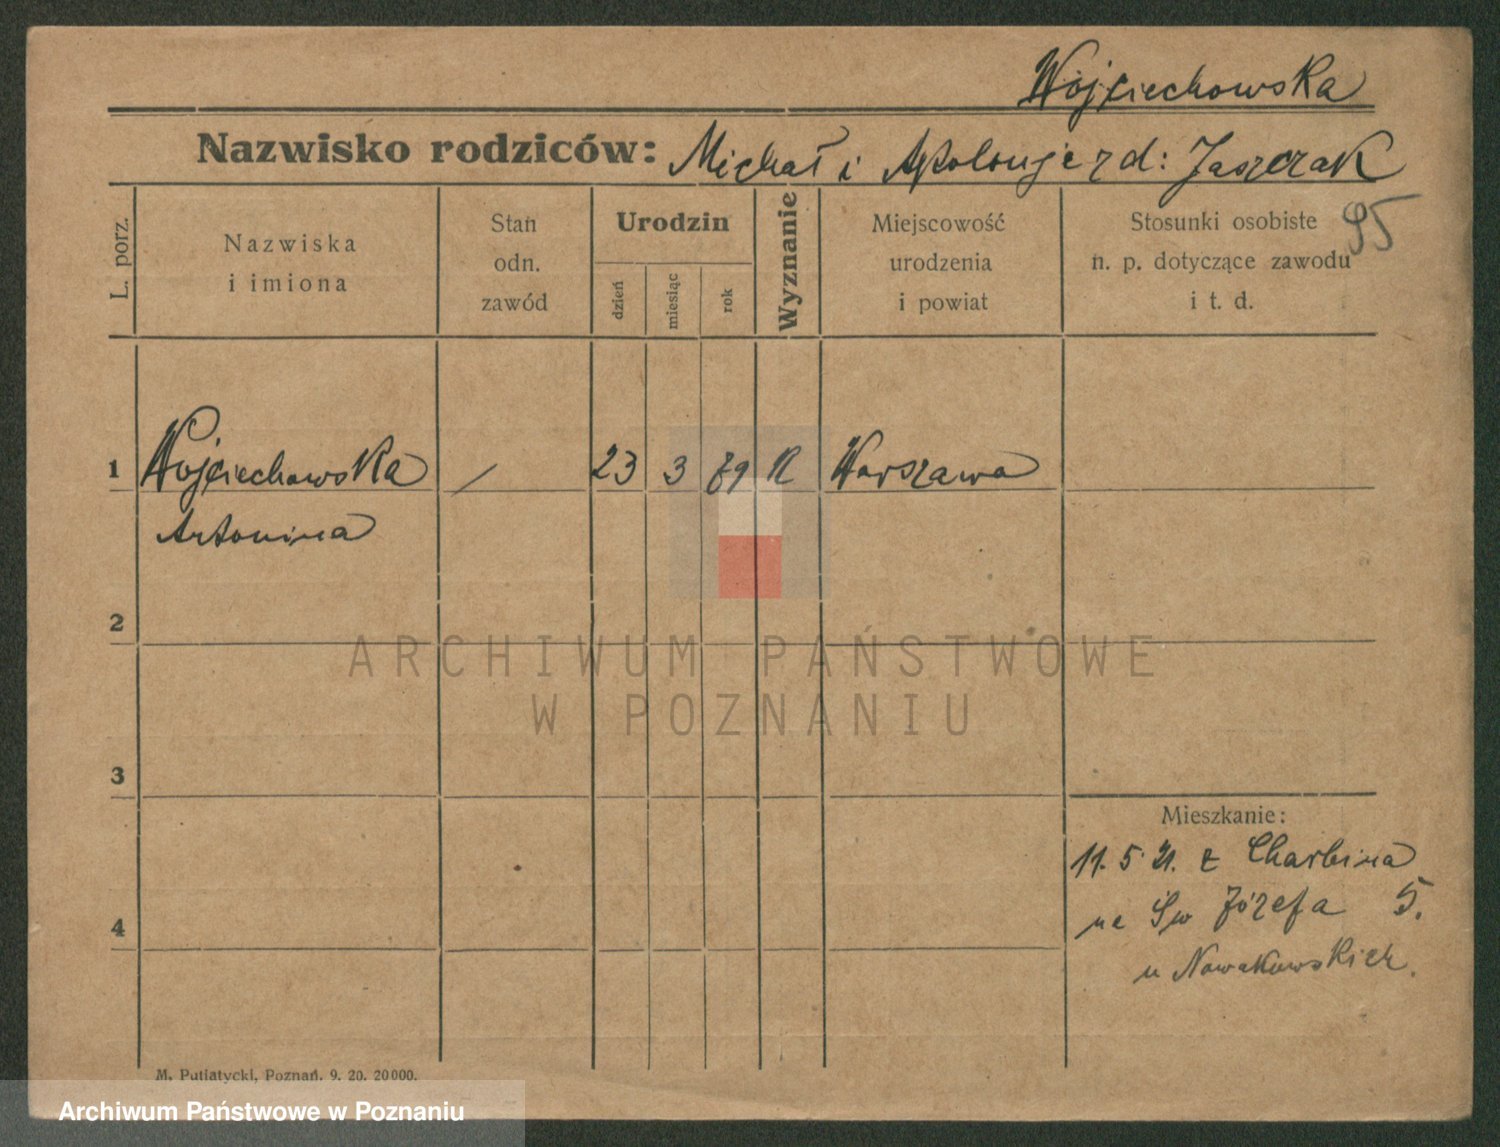 Wojciechowska
Nazwisko rodziców: Michał i Apolonje z d: Jaszczak
L. porz.
Nazwiska
i imiona
Stan
odn.
zawód
Urodzin
dzień
miesiąc
rok
Wyznanie
Miejscowość
urodzenia
i powiat
Stosunki osobiste
n. p. dotyczące zawodu
i t. d.
95
1 Wojciechowska / 23 3 79 R Warszawa
Antonina
2
3
4
Mieszkanie:
11. 5 21. z Charbina
na Św Józefa 5.
u Nowakowskich.
M. Putiatycki, Poznań. 9. 20. 20000.
ARCHIWUM PAŃSTWOWE
W POZNANIU
Archiwum Państwowe w Poznaniu